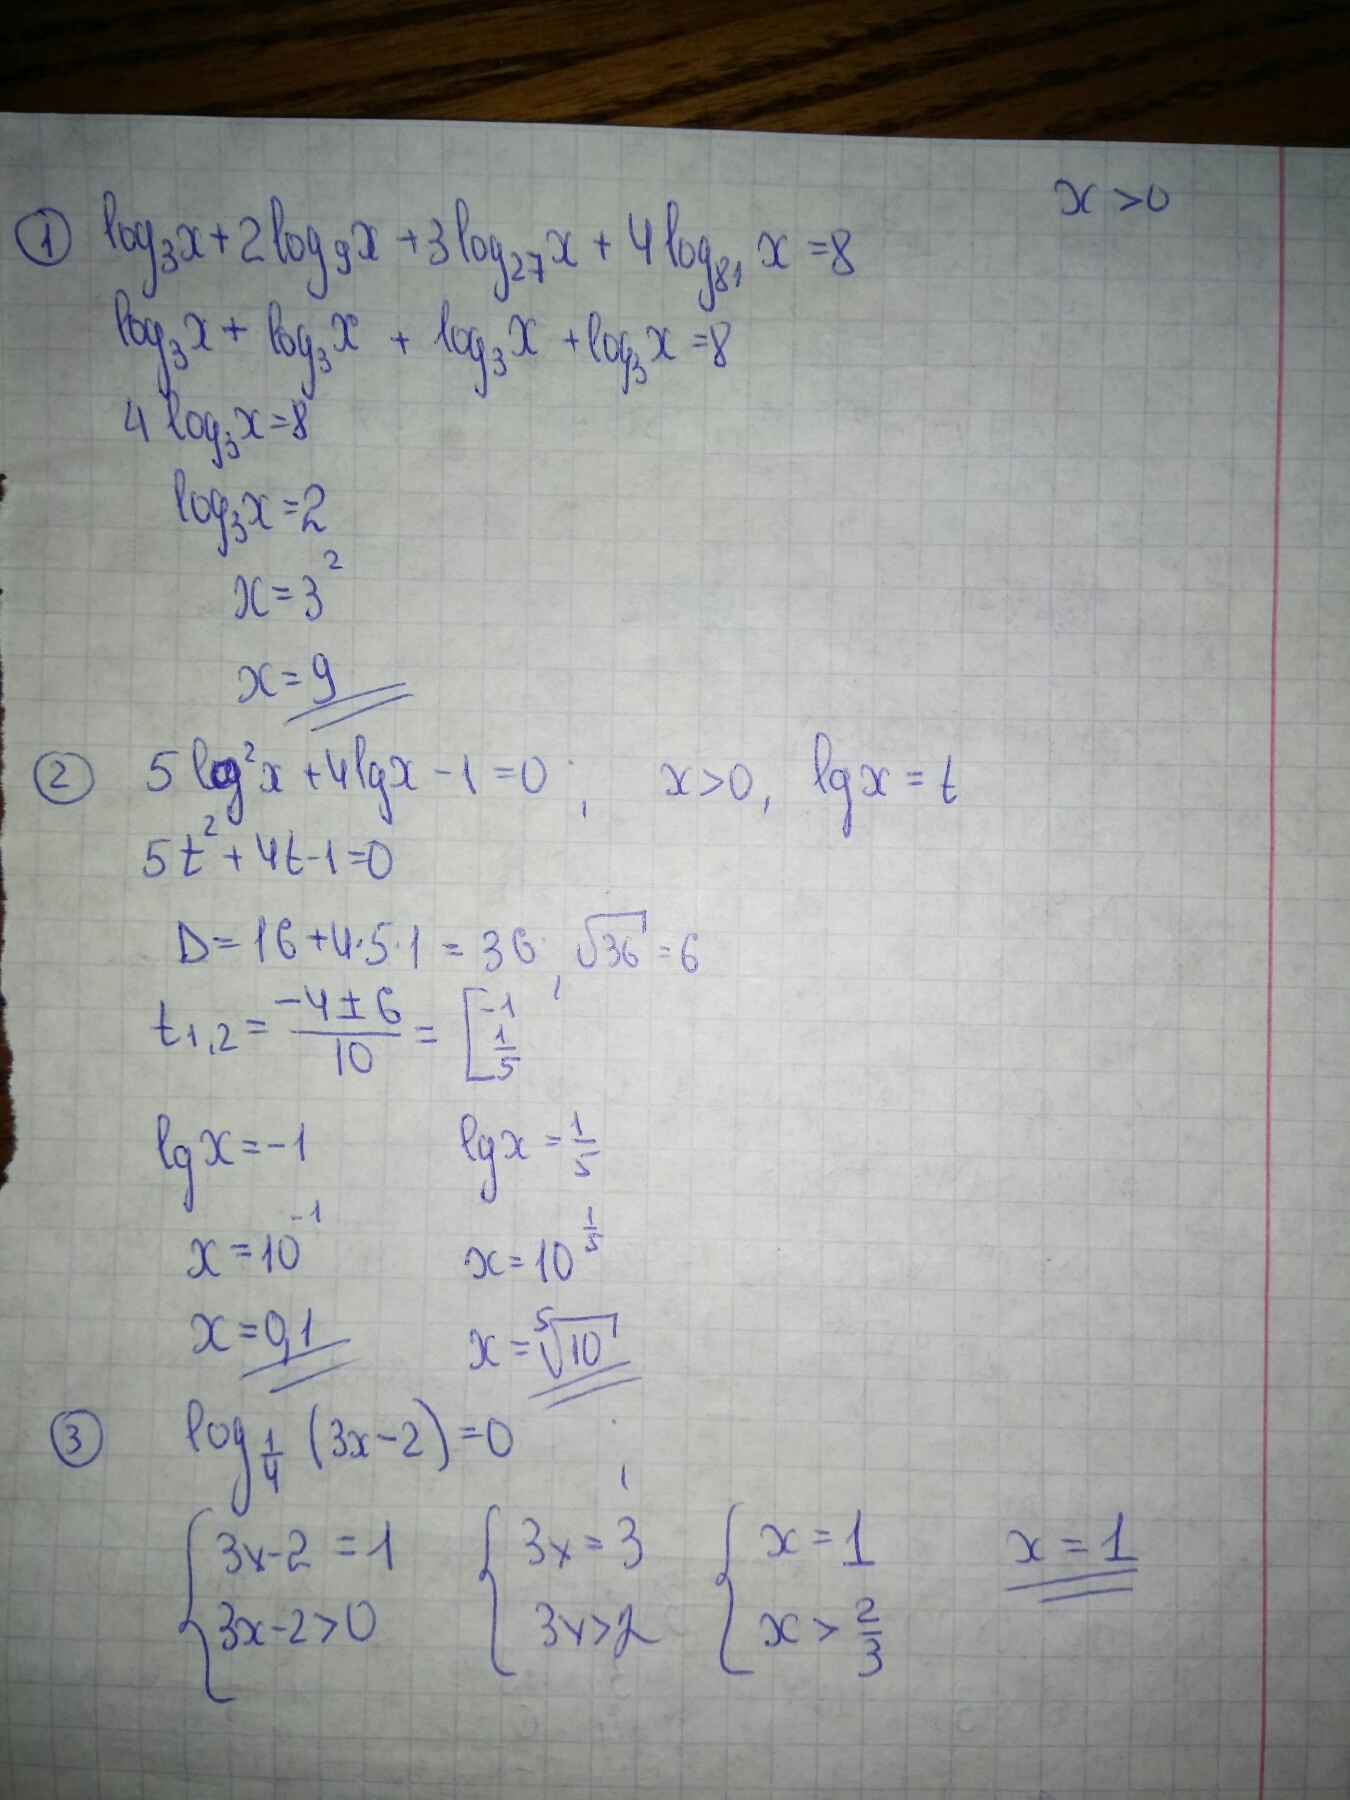 x>0
① log₃x+2log₉x+3log₂₇x+4log₈₁x=8
log₃x+log₃x+log₃x+log₃x=8
4log₃x=8
log₃x=2
x=3²
x=9
② 5lg²x+4lgx-1=0; x>0, lgx=t
5t²+4t-1=0
D=16+4·5·1=36, √36=6
t₁,₂=(-4±6)/10=[-1 1/5
lgx=-1 lgx=1/5
x=10⁻¹ x=10^(1/5)
x=0,1 x=⁵√10
③ log_(1/4)(3x-2)=0;
{3x-2=1 {3x=3 {x=1 x=1
3x-2>0 3x>2 x>2/3